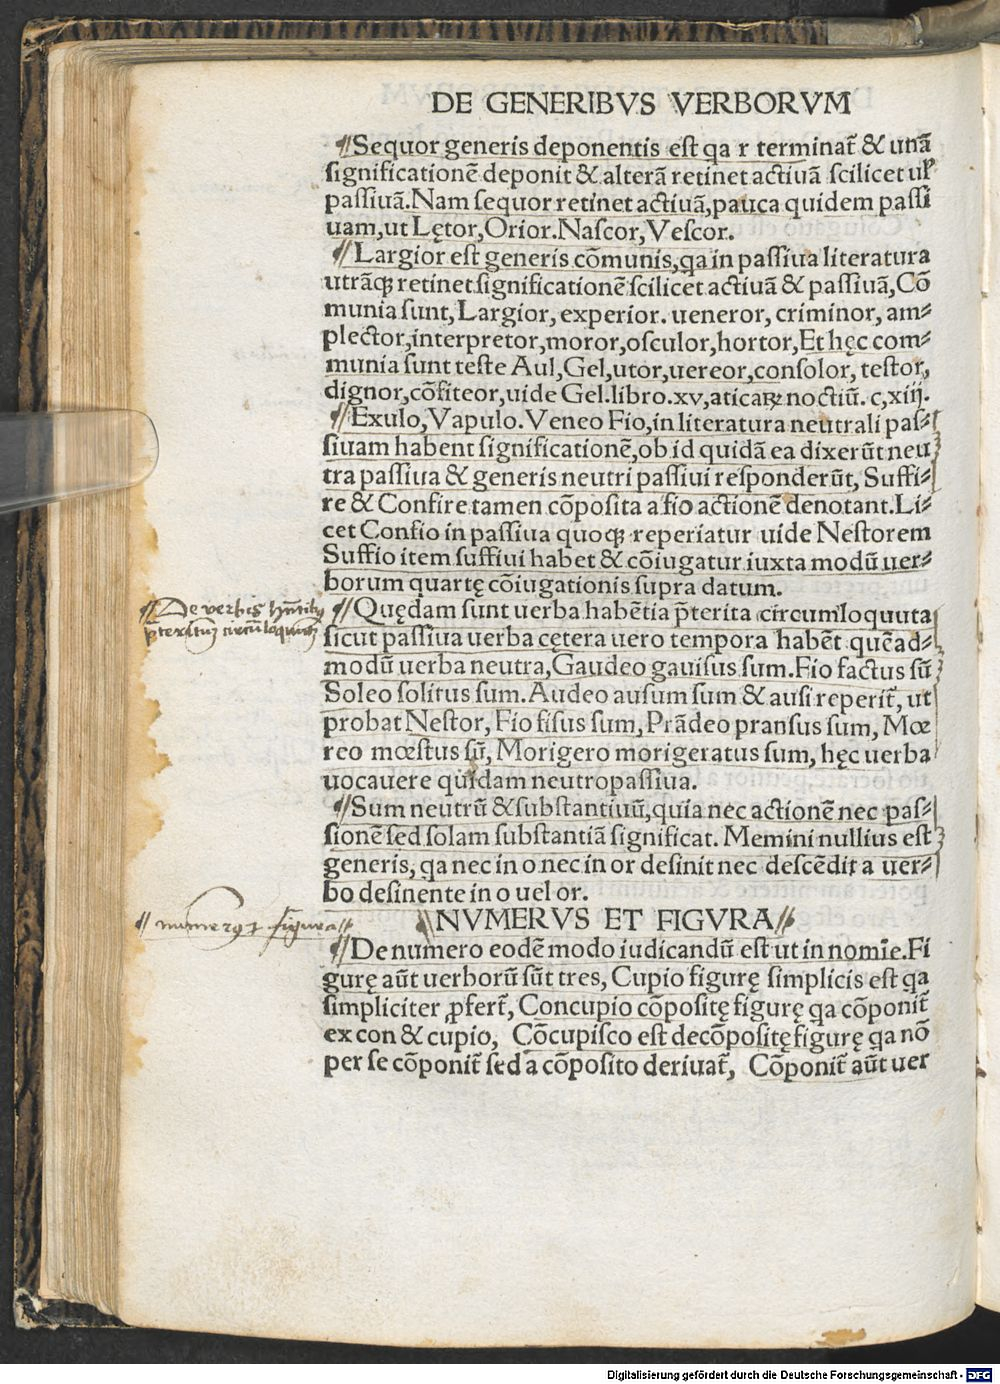 DE GENERIBVS VERBORVM
Sequor generis deponentis est qa r terminat̃ & unã
significationẽ deponit & alterã retinet actiuã scilicet ul̃
passiuã. Nam sequor retinet actiuã, pauca quidem passi
uam, ut Lętor, Orior. Nascor, Vescor.
Largior est generis cõmunis, qa in passiua literatura
utrãqꝫ retinet significationẽ scilicet actiuã & passiuã, Cõ
munia sunt, Largior, experior. ueneror, criminor, am⸗
plector, interpretor, moror, osculor, hortor, Et hęc com⸗
munia sunt teste Aul, Gel, utor, uereor, consolor, testor,
dignor, cõfiteor, uide Gel. libro. xv, aticaꝝ noctiũ. c, xiij.
Exulo, Vapulo. Veneo Fio, in literatura neutrali pas⸗
siuam habent significationẽ, ob id quidã ea dixerũt neu
tra passiua & generis neutri passiui responderũt, Suffi⸗
re & Confire tamen cõposita a fio actionẽ denotant. Li⸗
cet Confio in passiua quoqꝫ reperiatur uide Nestorem
Suffio item suffiui habet & cõiugatur iuxta modũ uer⸗
borum quartę cõiugationis supra datum.
De verbis
Quędam sunt uerba habẽtia p̃terita circumloquuta
sicut passiua uerba cętera uero tempora habẽt quẽad⸗
modũ uerba neutra, Gaudeo gauisus sum. Fio factus sũ
Soleo solitus sum. Audeo ausum sum & ausi reperit̃, ut
probat Nestor, Fio fisus sum, Prãdeo pransus sum, Mœ
reo mœstus sũ, Morigero morigeratus sum, hęc uerba
uocauere quidam neutropassiua.
Sum neutrũ & substantiuũ, quia nec actionẽ nec pas⸗
sionẽ sed solam substantiã significat. Memini nullius est
generis, qa nec in o nec in or desinit nec descẽdit a uer⸗
bo desinente in o uel or.
numerꝯ ⁊ figura
NVMERVS ET FIGVRA
De numero eodẽ modo iudicandũ est ut in nomĩe. Fi
gurę aũt uerborũ sũt tres, Cupio figurę simplicis est qa
simpliciter ꝓfert̃, Concupio cõpositę figurę qa cõponit̃
ex con & cupio, Cõcupisco est decõpositę figurę qa nõ
per se cõponit̃ sed a cõposito deriuat̃, Cõponit̃ aũt uer
Digitalisierung gefördert durch die Deutsche Forschungsgemeinschaft - DFG